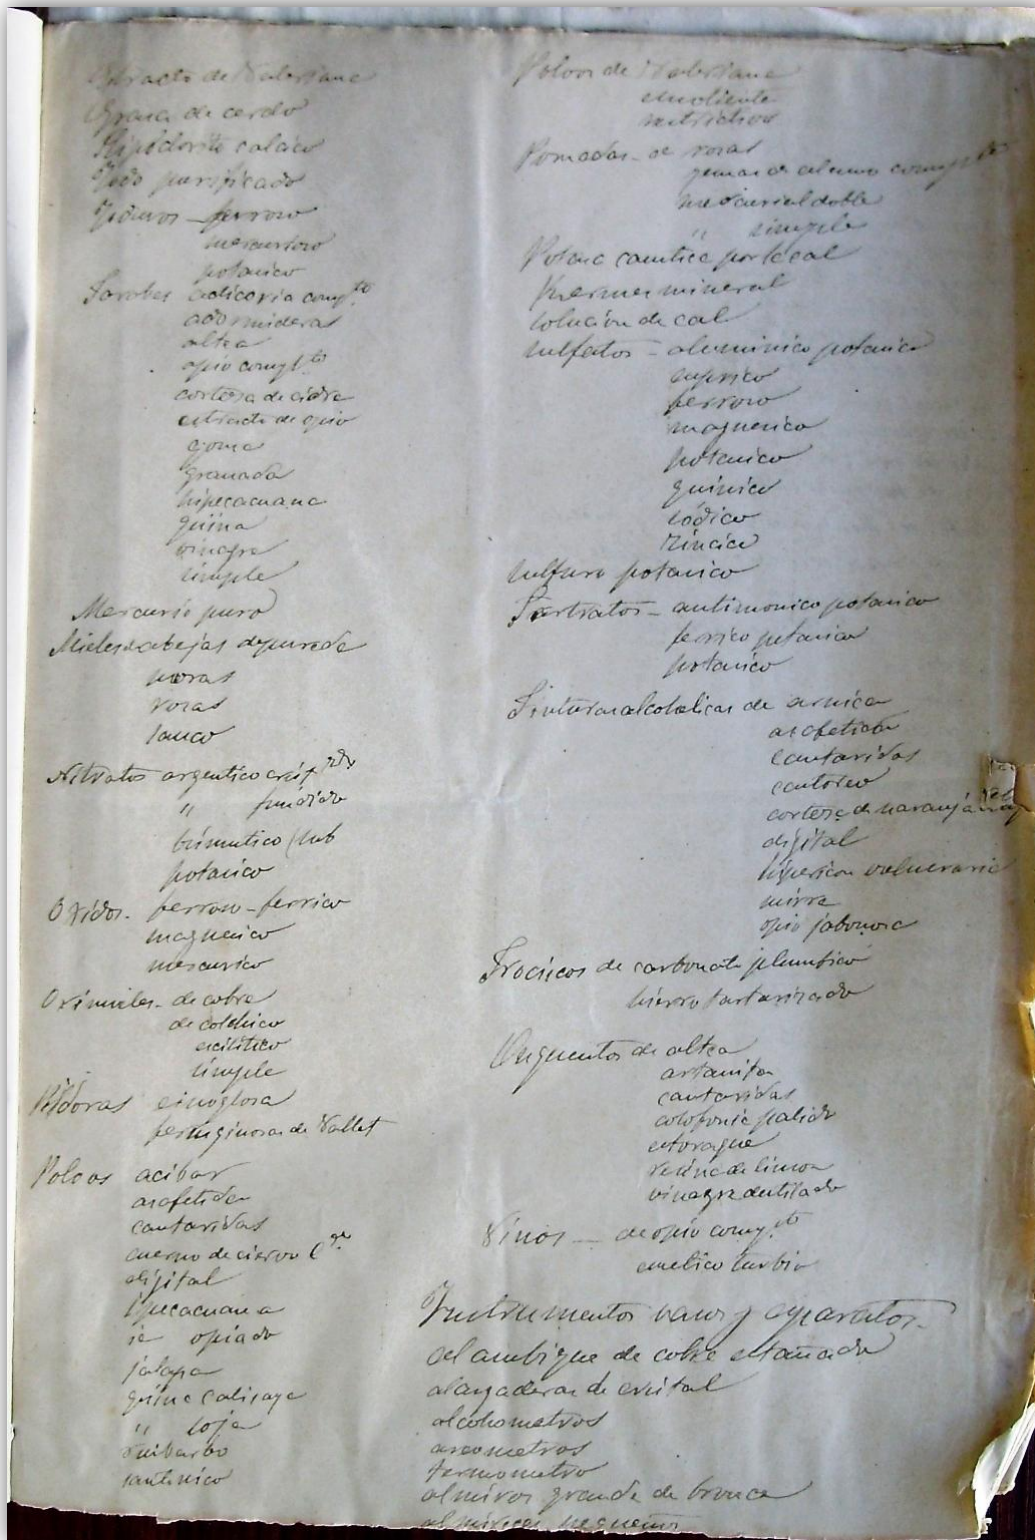 Estracto de Valeriana
Grasa de cerdo
Hipoclorito calcico
Yodo purificado
Yoduros - ferroso
mercurioso
potasico
Jarabes achicoria compto
adormideras
altea
opio compto
corteza de cidra
estracto de opio
goma
granada
hipecacuana
quina
vinagre
simple
Mercurio puro
Mieles de abejas depurada
moras
rosas
sauco
Nitratos argentico crist
" fundido
bismutico (sub
potasico
Oxidos - ferroso-ferrico
magnesico
mercurico
Oximieles - de cobre
de colchico
escilitico
simple
Pildoras cinoglosa
ferruginosas de Vallet
Polvos acibar
asafetida
cantaridas
cuerno de ciervo
digital
ipecacuana
opiado
jalapa
quina calisaya
" loja
ruibarbo
santonico
Polvos de Valeriana
emoliente
Pomadas - de rosas
de alamo
mercurial doble
" simple
Potasa caustica por la cal
Kermes mineral
solucion de cal
sulfatos - aluminico potasico
cuprico
ferroso
magnesico
potasico
quinico
sódico
zincico
sulfuro potasico
Tartratos - antimonico potasico
ferrico potasico
potasico
Tinturas alcoholicas de arnica
asafetida
cantaridas
castoreo
corteza de naranja
digital
hipericon vulneraria
mirra
opio jabonosa
Trociscos de carbonato plumbico
hierro tartarizado
Unguentos de altea
artanita
cantaridas
colofonia palida
estoraque
resina de limon
vinagre destilado
Vinos - de opio compto
emetico turbio
Instrumentos vasos y aparatos -
alambique de cobre estañado
alargaderas de cristal
alcohometros
areometros
termometro
almirez grande de bronce
almireces pequeños